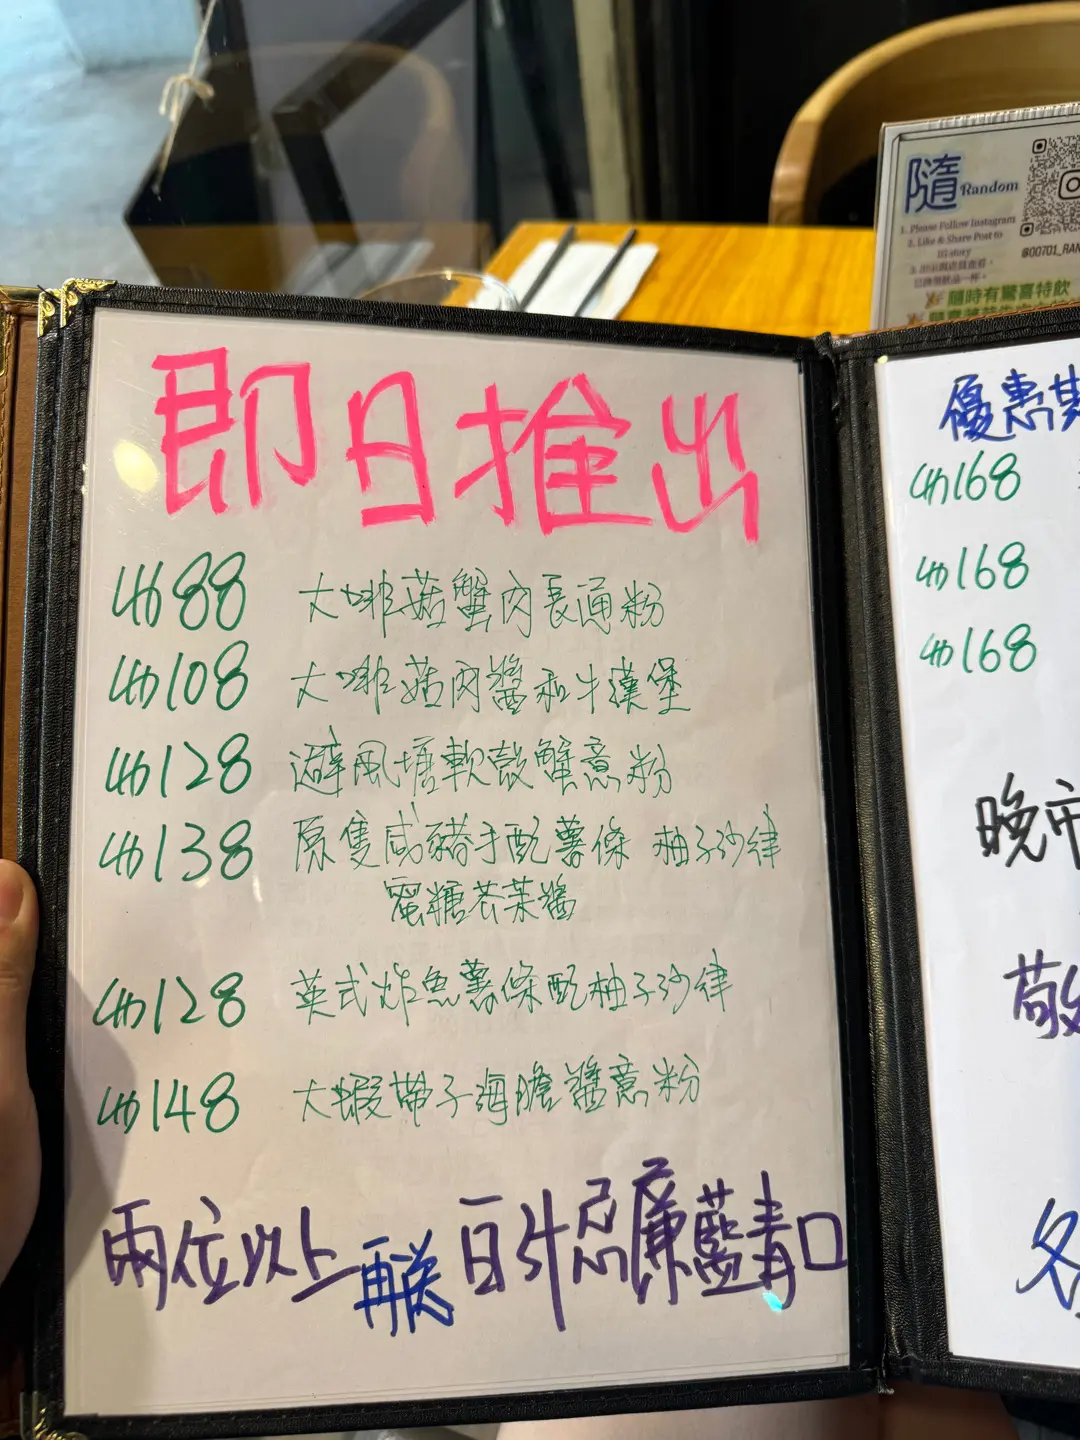 隨 Random
1. Please Follow Instagram
2. Like & Share Post to
IG story
@00701_RAN
隨時有驚喜特飲
即日推出
88 大啡菇蟹肉長通粉
108 大啡菇肉醬和牛漢堡
128 避風塘軟殼蟹意粉
138 原隻咸豬手配薯條 柚子沙律
蜜糖芥茉醬
128 英式炸魚薯條配柚子沙律
148 大蝦帶子海膽醬意粉
兩位以上再送白汁忌廉藍青口
優惠
168
168
168
晚市